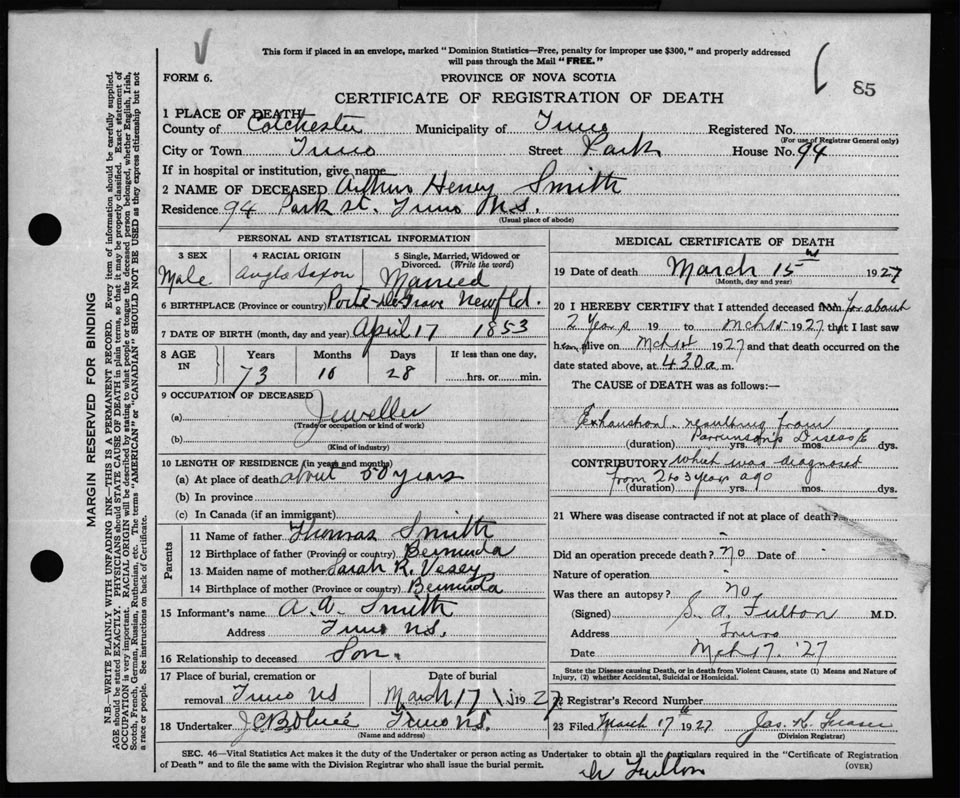 This form if placed in an envelope, marked "Dominion Statistics—Free, penalty for improper use $300," and properly addressed
will pass through the Mail "FREE."
FORM 6.
PROVINCE OF NOVA SCOTIA
85
CERTIFICATE OF REGISTRATION OF DEATH
1 PLACE OF DEATH
County of Colchester Municipality of Truro Registered No.
(For use of Registrar General only)
City or Town Truro Street Park House No. 94
If in hospital or institution, give name
2 NAME OF DECEASED Arthur Henry Smith
Residence 94 Park st. Truro N.S.
(Usual place of abode)
PERSONAL AND STATISTICAL INFORMATION
3 SEX 4 RACIAL ORIGIN 5 Single, Married, Widowed or Divorced. (Write the word)
Male Anglo Saxon Married
6 BIRTHPLACE (Province or country) Newfld.
7 DATE OF BIRTH (month, day and year) April 17 1853
8 AGE IN Years Months Days If less than one day,
73 10 28 hrs. or min.
9 OCCUPATION OF DECEASED
(a) Jeweller
(Trade or occupation or kind of work)
(b)
(Kind of industry)
10 LENGTH OF RESIDENCE (in years and months)
(a) At place of death about 50 years
(b) In province
(c) In Canada (if an immigrant)
Parents
11 Name of father Thomas Smith
12 Birthplace of father (Province or country) Bermuda
13. Maiden name of mother Sarah R. Vesey
14 Birthplace of mother (Province or country) Bermuda
15 Informant's name A. W. Smith
Address Truro N.S.
16 Relationship to deceased Son.
17 Place of burial, cremation or removal Truro NS
Date of burial March 17 1927
18 Undertaker Truro N.S.
(Name and address)
MEDICAL CERTIFICATE OF DEATH
19 Date of death March 15 1927
(Month, day and year)
20 I HEREBY CERTIFY that I attended deceased from for about
2 Years 19 to Mch 15 1927 that I last saw
him alive on Mch 1st 1927 and that death occurred on the
date stated above, at 4 30 a m.
The CAUSE of DEATH was as follows:—
Exhaustion resulting from
Parkinson's Disease
(duration) yrs. mos. dys.
CONTRIBUTORY which was diagnosed
from 2 to 3 years ago
(duration) yrs. mos. dys.
21 Where was disease contracted if not at place of death?
Did an operation precede death? no Date of
Nature of operation
Was there an autopsy? no
(Signed) S. A. Fulton M.D.
Address Truro
Date Mch 17. '27
State the Disease causing Death, or in death from Violent Causes, state (1) Means and Nature of
Injury, (2) whether Accidental, Suicidal or Homicidal.
22 Registrar's Record Number
23 Filed March 17 1927 Jas. K. Fraser
(Division Registrar)
SEC. 46—Vital Statistics Act makes it the duty of the Undertaker or person acting as Undertaker to obtain all the particulars required in the "Certificate of Registration
of Death" and to file the same with the Division Registrar who shall issue the burial permit.
(OVER)
Fulton
MARGIN RESERVED FOR BINDING
N.B.—WRITE PLAINLY WITH UNFADING INK—THIS IS A PERMANENT RECORD. Every item of information should be carefully supplied.
AGE should be stated EXACTLY. PHYSICIANS should STATE CAUSE OF DEATH in plain terms, so that it may be properly classified. Exact statement of
OCCUPATION is very important. RACIAL ORIGIN will be described by stating to what people or tongue the deceased person belonged, whether English, Irish,
Scotch, French, German, Russian, Ruthenian, etc. The terms "AMERICAN" or "CANADIAN" SHOULD NOT BE USED as they express citizenship but not
a race or people. See instructions on back of Certificate.